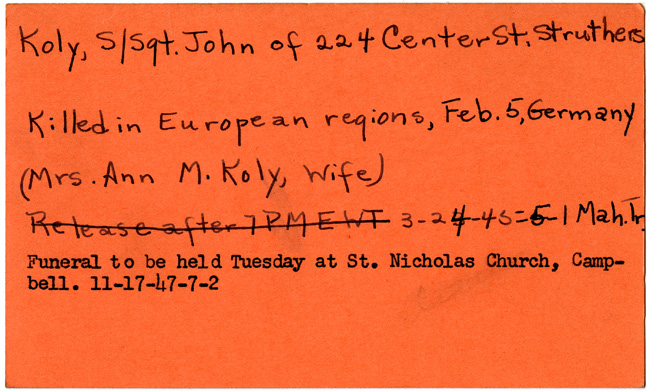 Koly, S/Sgt. John of 224 Center St. Struthers
Killed in European regions, Feb. 5, Germany
(Mrs. Ann M. Koly, Wife)
Release after 7 PM EWT 3-24-45=5-1 Mah. Tr.
Funeral to be held Tuesday at St. Nicholas Church, Camp-
bell. 11-17-47-7-2